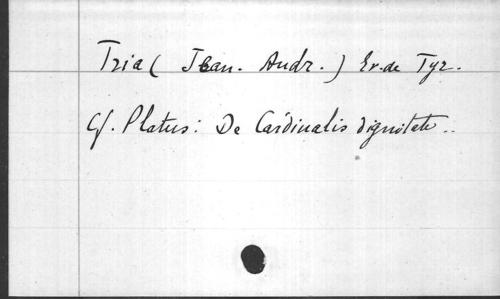 Tria ( Jean. Andr. ) Ev. de Tyr.
Cf. Platus: De Cardinalis dignitate..